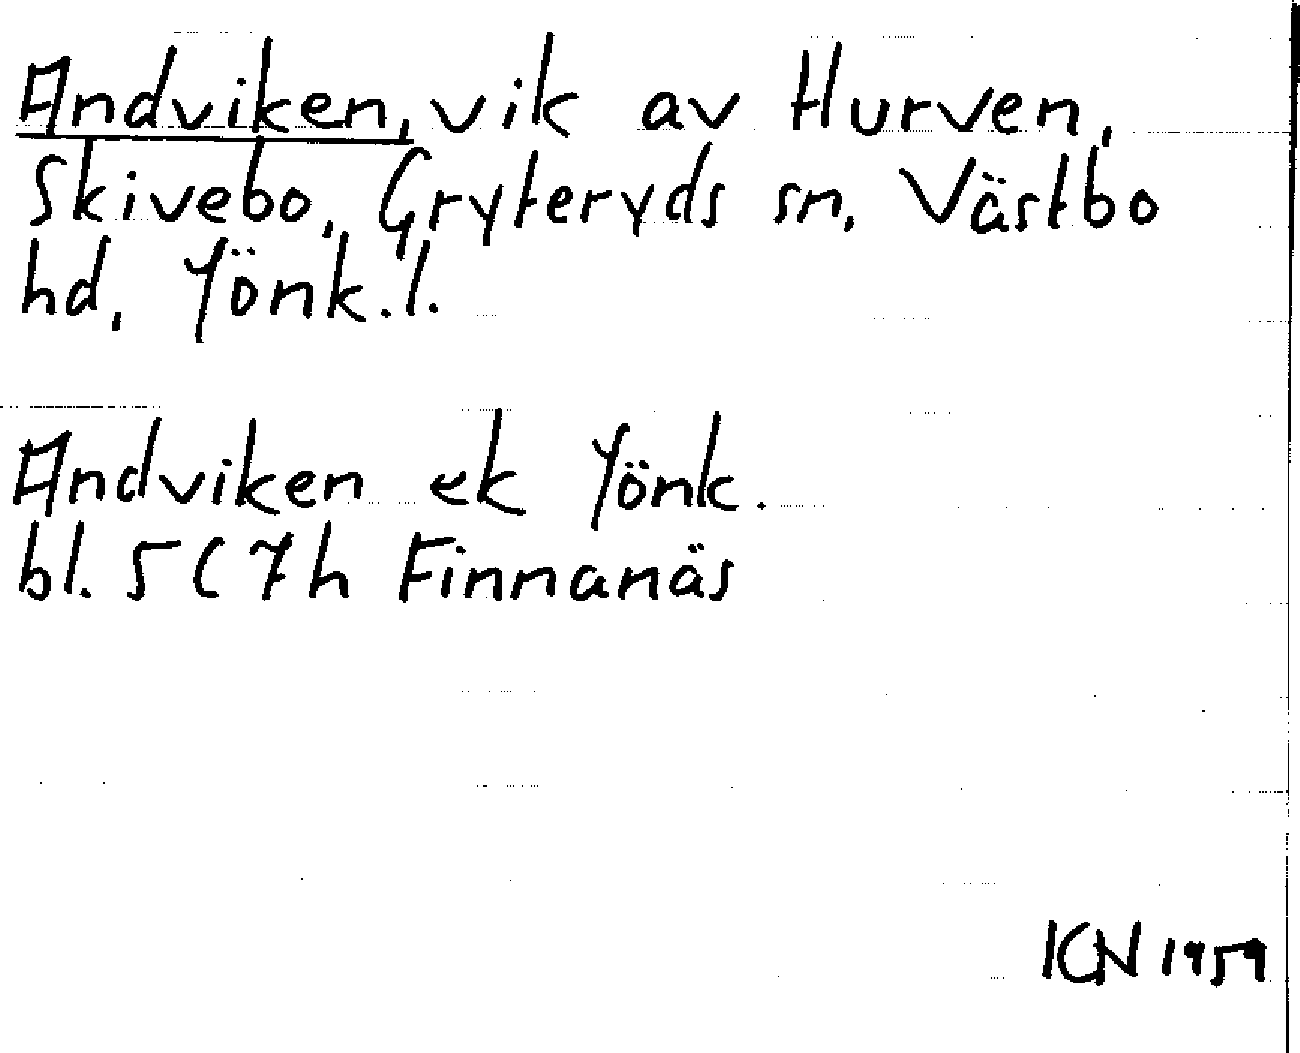 Andviken, vik av Hurven,
Skivebo, Gryteryds sn, Västbo
hd, Jönk.l.
Andviken ek Jönk.
bl. 5C7h Finnanäs
ICN 1959